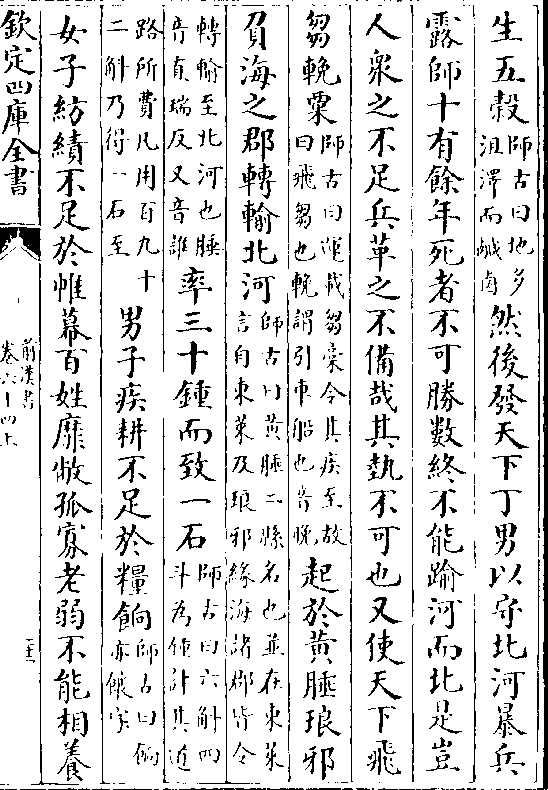 生五穀師古曰地多沮澤而鹹鹵然後發天下丁男以守北河暴兵
露師十有餘年死者不可勝數終不能踰河而北是豈
人衆之不足兵革之不備哉其埶不可也又使天下飛
芻輓粟師古曰運載芻槀令其疾至故曰飛芻也輓謂引車船也音晚起於黃腄琅邪
負海之郡轉輸北河師古曰黃腄二縣名也並在東萊言自東萊及琅邪緣海諸郡皆令
轉輸至北河也腄音直瑞反又音誰率三十鍾而致一石師古曰六斛四斗為鍾計其道
路所費凡用百九十二斛乃得一石至男子疾耕不足於糧餉師古曰餉亦饟字
女子紡績不足於帷幕百姓靡敝孤寡老弱不能相養
欽定四庫全書
前漢書
卷六十四上